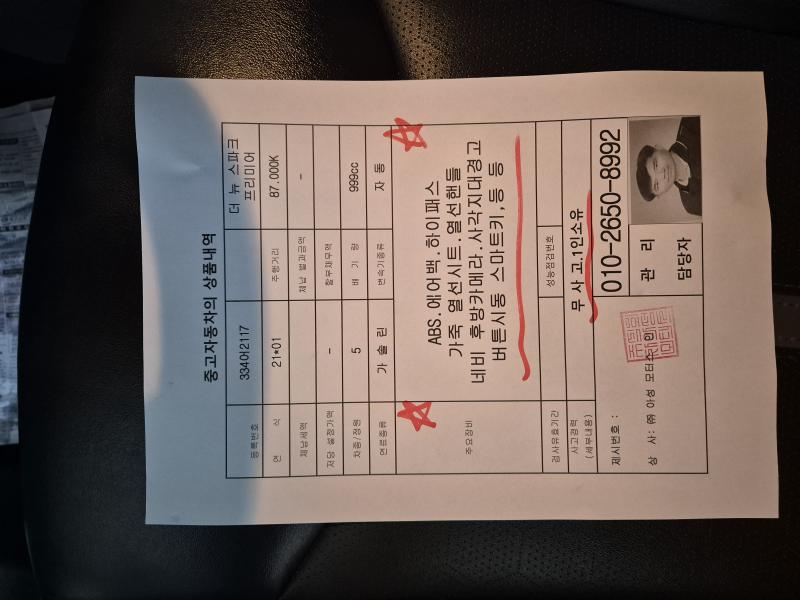 중고자동차의 상품내역
등록번호 334어2117 더 뉴 스파크 프리미어
연 식 21*01 주행거리 87.000K
체납세액 체납 벌과금액 -
저당 설정가액 - 할부채무액 -
차종/정원 5 배 기 량 999cc
연료종류 가 솔 린 변속기종류 자 동
주요장비
ABS.에어백.하이패스
가죽 열선시트.열선핸들
네비 후방카메라.사각지대경고
버튼시동 스마트키,등 등
검사유효기간 성능점검번호
사고경력 (세부내용) 무 사 고.1인소유
제시번호 : 010-2650-8992
상 사: ㈜ 아성 모터스
관 리
담당자